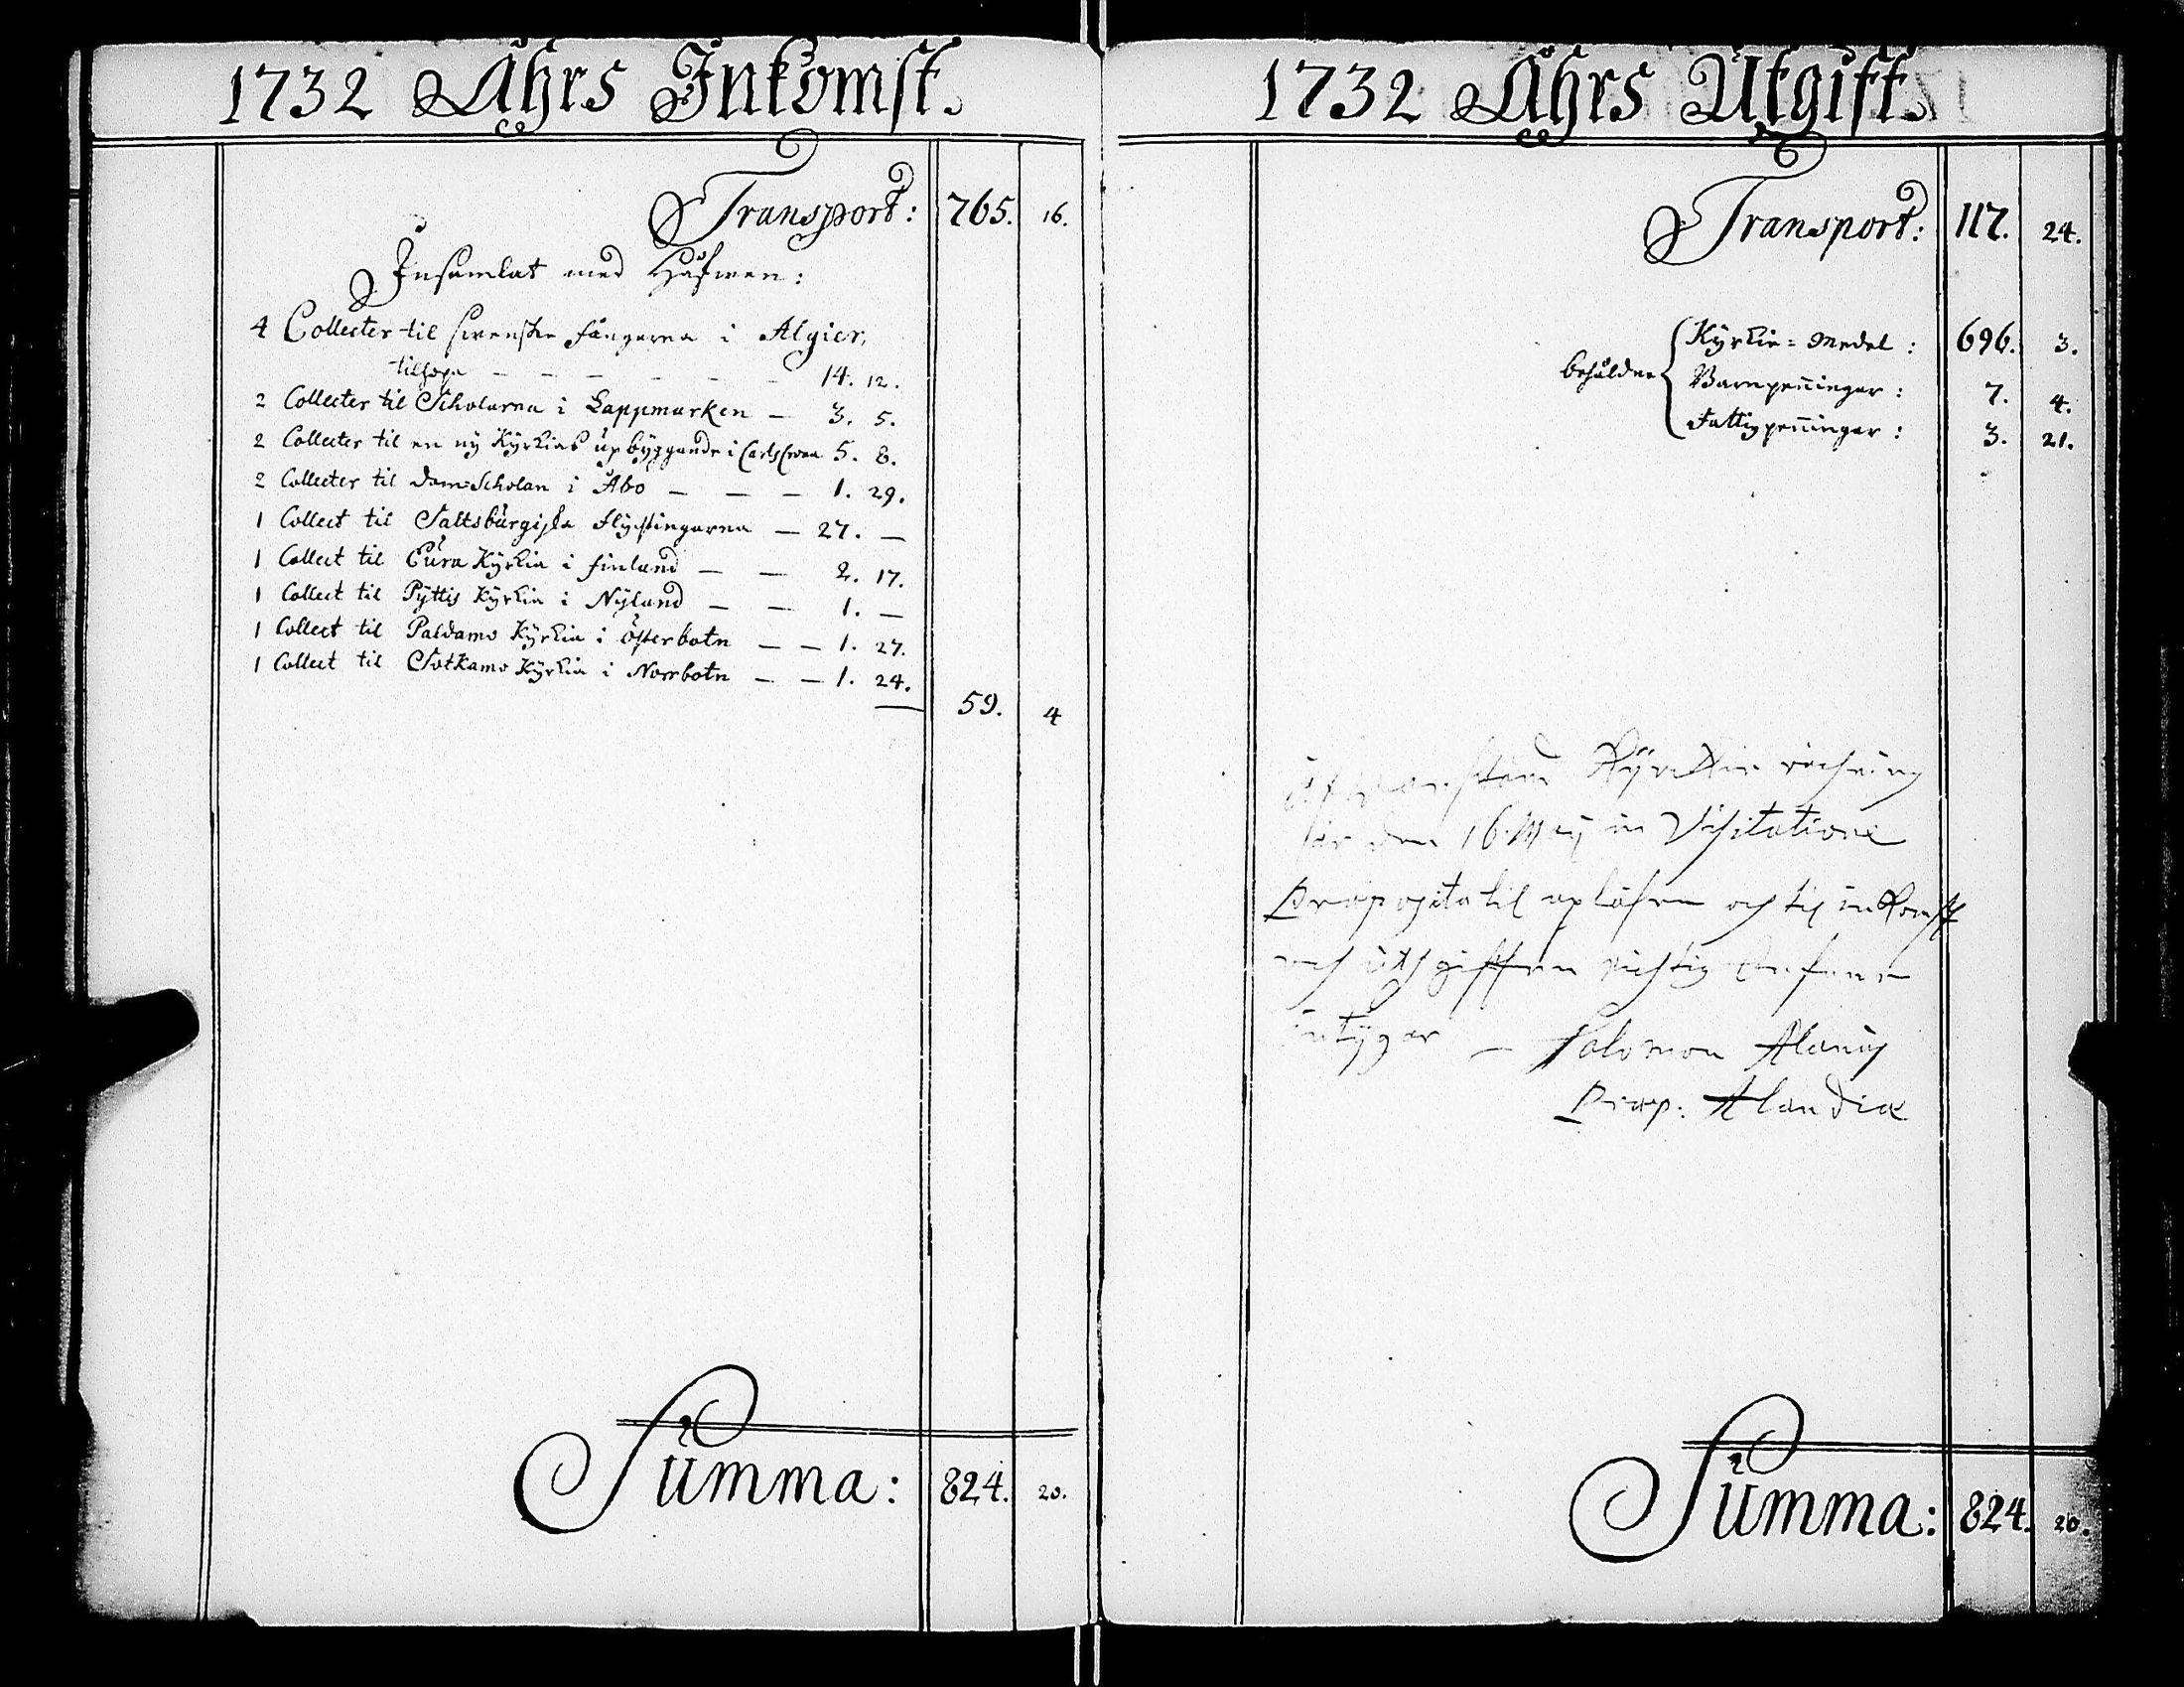 1732 Åhrs Inkomst.
Transport: 765. 16.
Insamlat med Håfwen:
4 Collecter til swenska fångarna i Algier,
tilhopa — — — — — — 14. 12.
2 Collecter til Scholarna i Lappmarken — 3. 5.
2 Collecter til en ny Kyrkias upbyggande i CarlsCrona 5. 8.
2 Collecter til Dom-Scholan i Åbo — — — 1. 29.
1 Collect til Saltsburgiska flychtingarna — 27. —
1 Collect til Eura Kyrkia i finland — — 2. 17.
1 Collect til Pyttis Kyrkia i Nyland — — 1. —
1 Collect til Paldamo Kyrkia i Österbotn — — 1. 27.
1 Collect til Sotkamo Kyrkia i Norrbotn — — 1. 24.
59. 4
Summa: 824. 20.
1732 Åhrs Utgift.
Transport: 117. 24.
Kyrkie-Medel: 696. 3.
behåldne Barnpenningar: 7. 4.
Fattigpenningar: 3. 21.
Kyrkie räkning
är den 16 Maij in Visitatione
Præposita til upläsen och til inkomst
och uthgifften richtig befunnen
intygar — Salomon Alanus
Præp: Alandiæ
Summa: 824. 20.